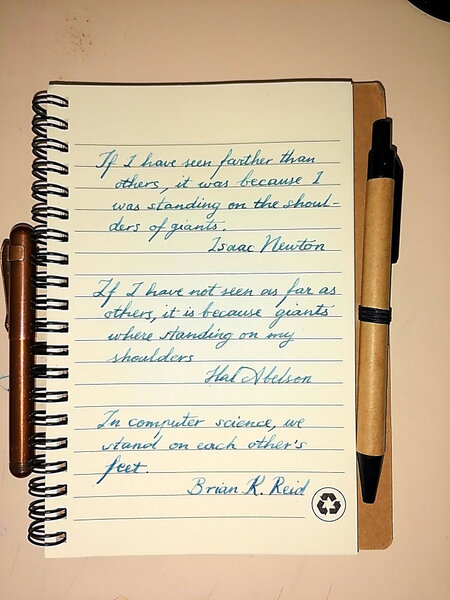 If I have seen farther than
others, it was because I
was standing on the shoul-
ders of giants.
Isaac Newton
If I have not seen as far as
others, it is because giants
where standing on my
shoulders
Hal Abelson
In computer science, we
stand on each other's
feet.
Brian K. Reid